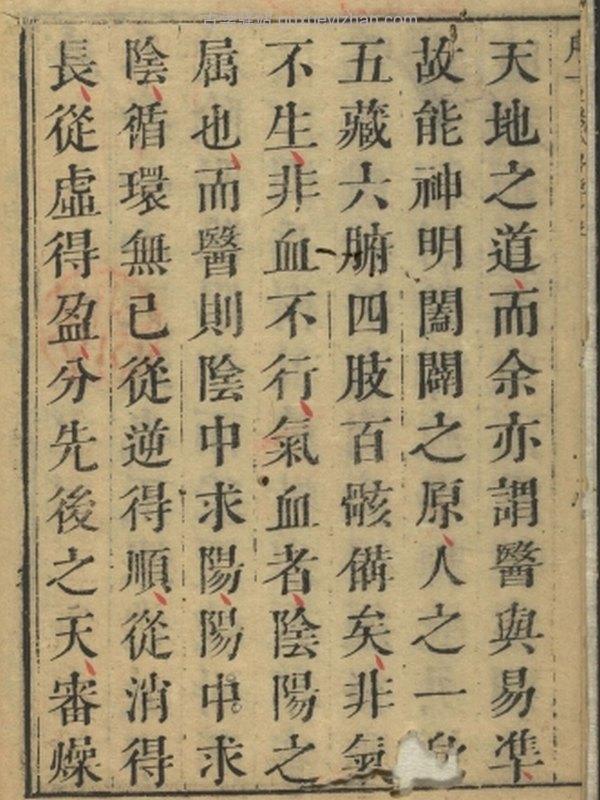 天地之道而余亦謂醫與易準
故能神明闔闢之原人之一
五藏六腑四肢百骸備矣非氣
不生非血不行氣血者陰陽之
属也而醫則陰中求陽陽中求
陰循環無已從逆得順從消得
長從虛得盈分先後之天審燥